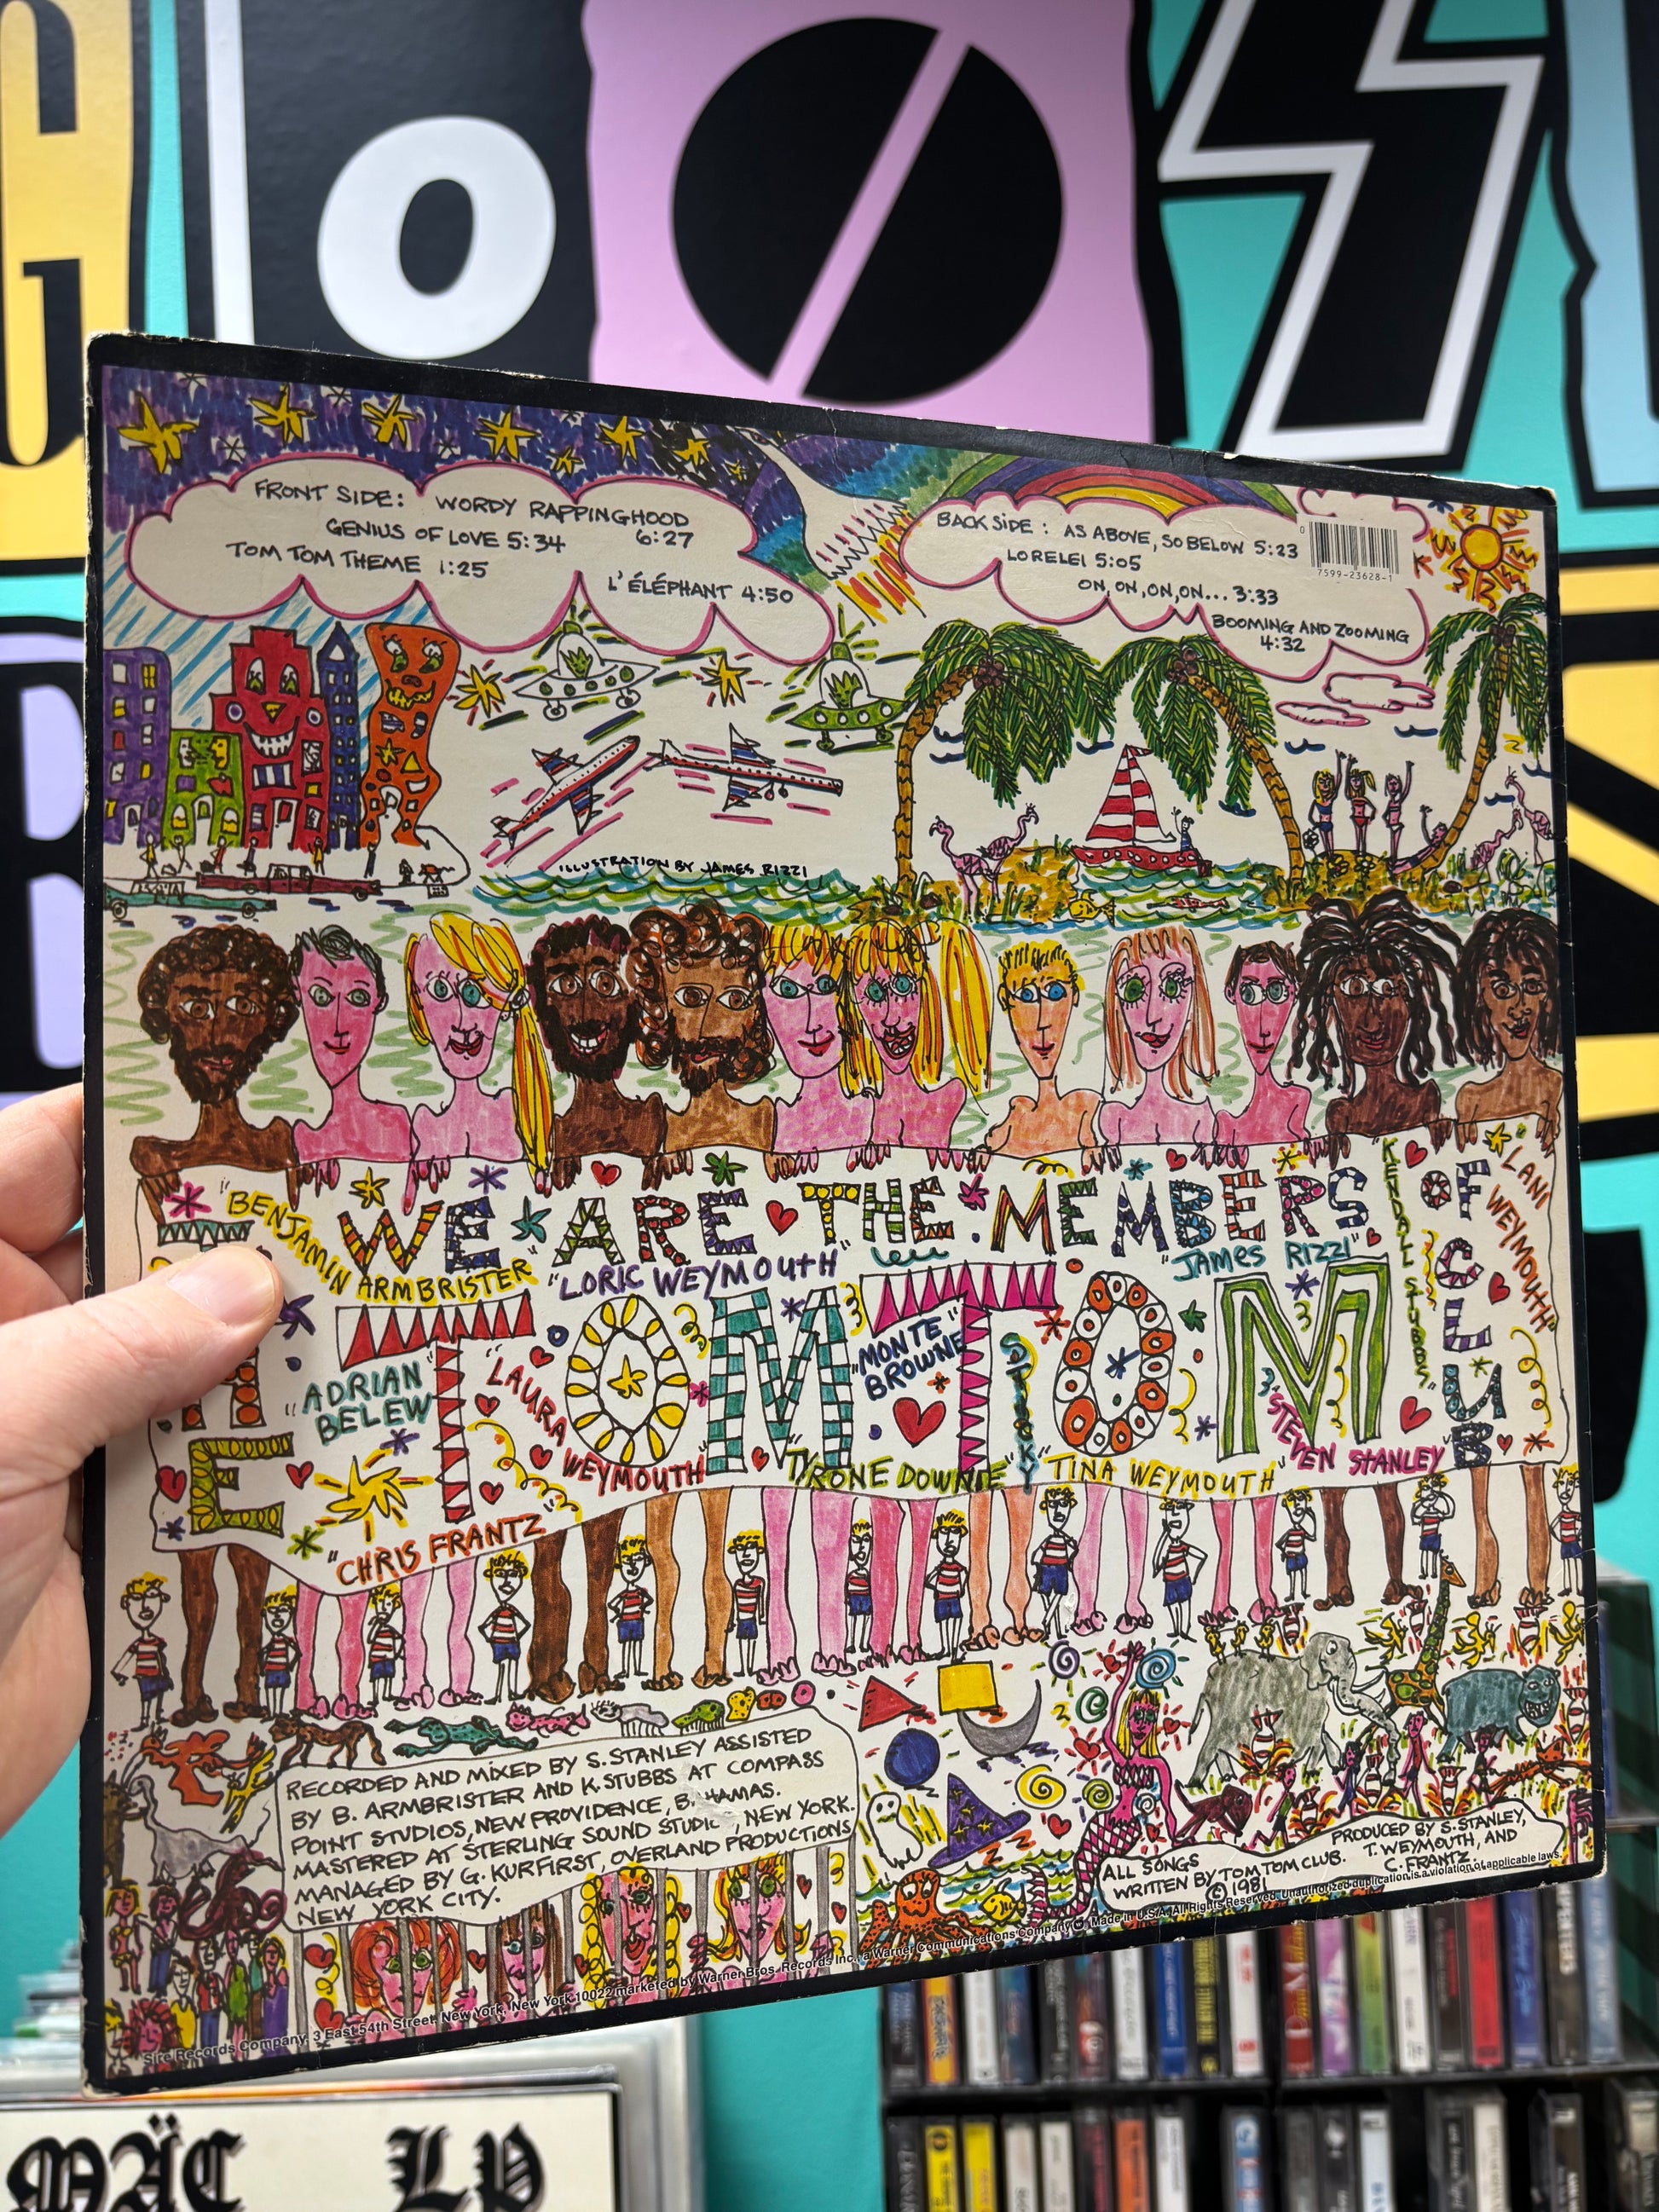 FRONT SIDE: WORDY RAPPINGHOOD
6:27
GENIUS OF LOVE 5:34
TOM TOM THEME 1:25
L'ÉLÉPHANT 4:50
BACK SIDE: AS ABOVE, SO BELOW 5:23
LORELEI 5:05
ON, ON, ON, ON... 3:33
BOOMING AND ZOOMING
4:32
0
7599-23628-1
ILLUSTRATION BY JAMES RIZZI
WE ARE THE MEMBERS
OF
THE
TOM TOM
CLUB
"BENJAMIN ARMBRISTER"
"LORIC WEYMOUTH"
"JAMES RIZZI"
"KENDAL STUBBS"
"LANI WEYMOUTH"
"ADRIAN
BELEW"
"LAURA WEYMOUTH"
"MONTE
BROWNE"
"STICKY"
"STEVEN STANLEY"
"TYRONE DOWNIE"
"TINA WEYMOUTH"
"CHRIS FRANTZ"
RECORDED AND MIXED BY S. STANLEY ASSISTED
BY B. ARMBRISTER AND K. STUBBS AT COMPASS
POINT STUDIOS, NEW PROVIDENCE, B HAMAS.
MASTERED AT STERLING SOUND STUDI , NEW YORK.
MANAGED BY G. KURFIRST, OVERLAND PRODUCTIONS,
NEW YORK CITY.
ALL SONGS
WRITTEN BY TOM TOM CLUB.
© 1981
PRODUCED BY S. STANLEY,
T. WEYMOUTH, AND
C. FRANTZ.
Sire Records Company, 3 East 54th Street, New York, New York 10022 marketed by Warner Bros. Records Inc., a Warner Communications Company Made in U.S.A. All Rights Reserved. Unauthorized duplication is a violation of applicable laws.
MÄC LP